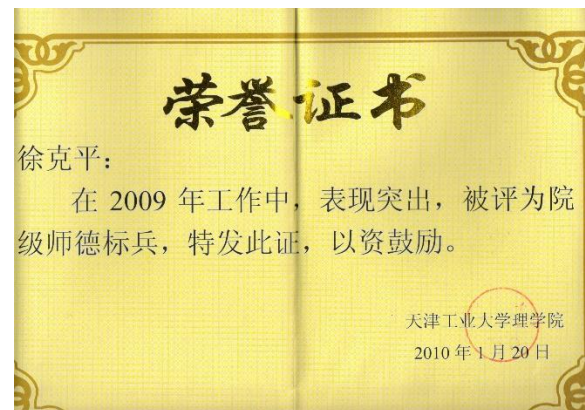 荣誉证书
徐克平：
在 2009 年工作中，表现突出，被评为院
级师德标兵，特发此证，以资鼓励。
天津工业大学理学院
2010 年 1 月 20 日